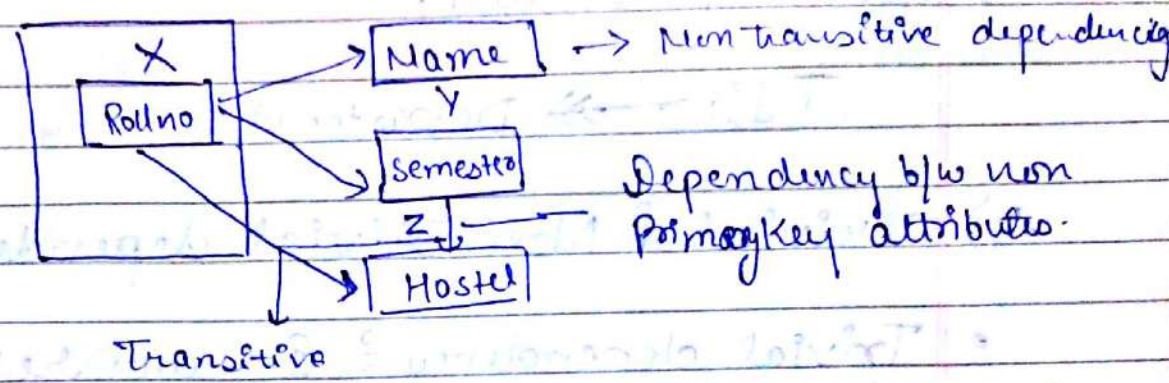 X
Rollno
Name → Non transitive dependencies
Y
Semester
Z
Dependency b/w non
Primary key attributes.
Hostel
Transitive